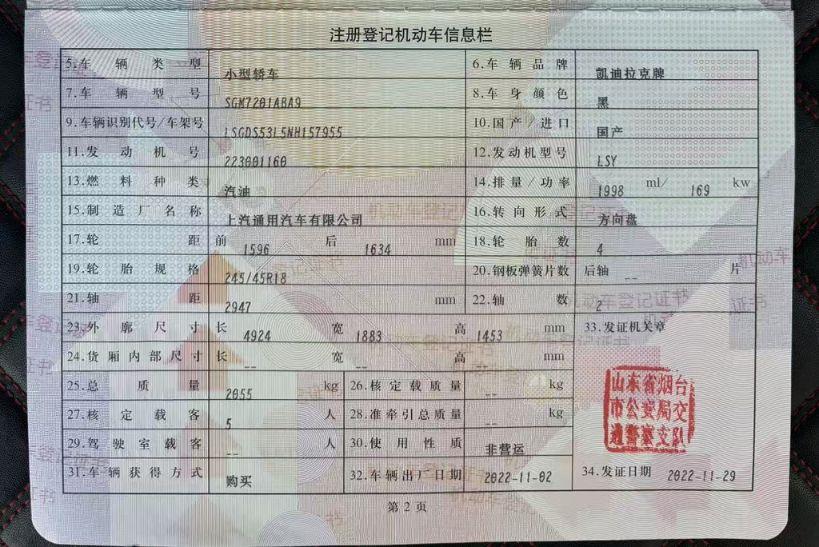 注册登记机动车信息栏
5.车辆类型 小型轿车 6.车辆品牌 凯迪拉克牌
7.车辆型号 SGM7201ABA9 8.车身颜色 黑
9.车辆识别代号/车架号 LSGDS53L5NH157955 10.国产/进口 国产
11.发动机号 223001160 12.发动机型号 LSY
13.燃料种类 汽油 14.排量/功率 1998 ml/ 169 kw
15.制造厂名称 上汽通用汽车有限公司 16.转向形式 方向盘
17.轮距 前 1596 后 1634 mm 18.轮胎数 4
19.轮胎规格 245/45R18 20.钢板弹簧片数 后轴 -- 片
21.轴距 2947 mm 22.轴数 2
23.外廓尺寸 长 4924 宽 1883 高 1453 mm 33.发证机关章
24.货厢内部尺寸 长 -- 宽 -- 高 -- mm
25.总质量 2055 kg 26.核定载质量 -- kg
山东省烟台
市公安局交
通警察支队
27.核定载客 5 人 28.准牵引总质量 -- kg
29.驾驶室载客 -- 人 30.使用性质 非营运
31.车辆获得方式 购买 32.车辆出厂日期 2022-11-02 34.发证日期 2022-11-29
第2页